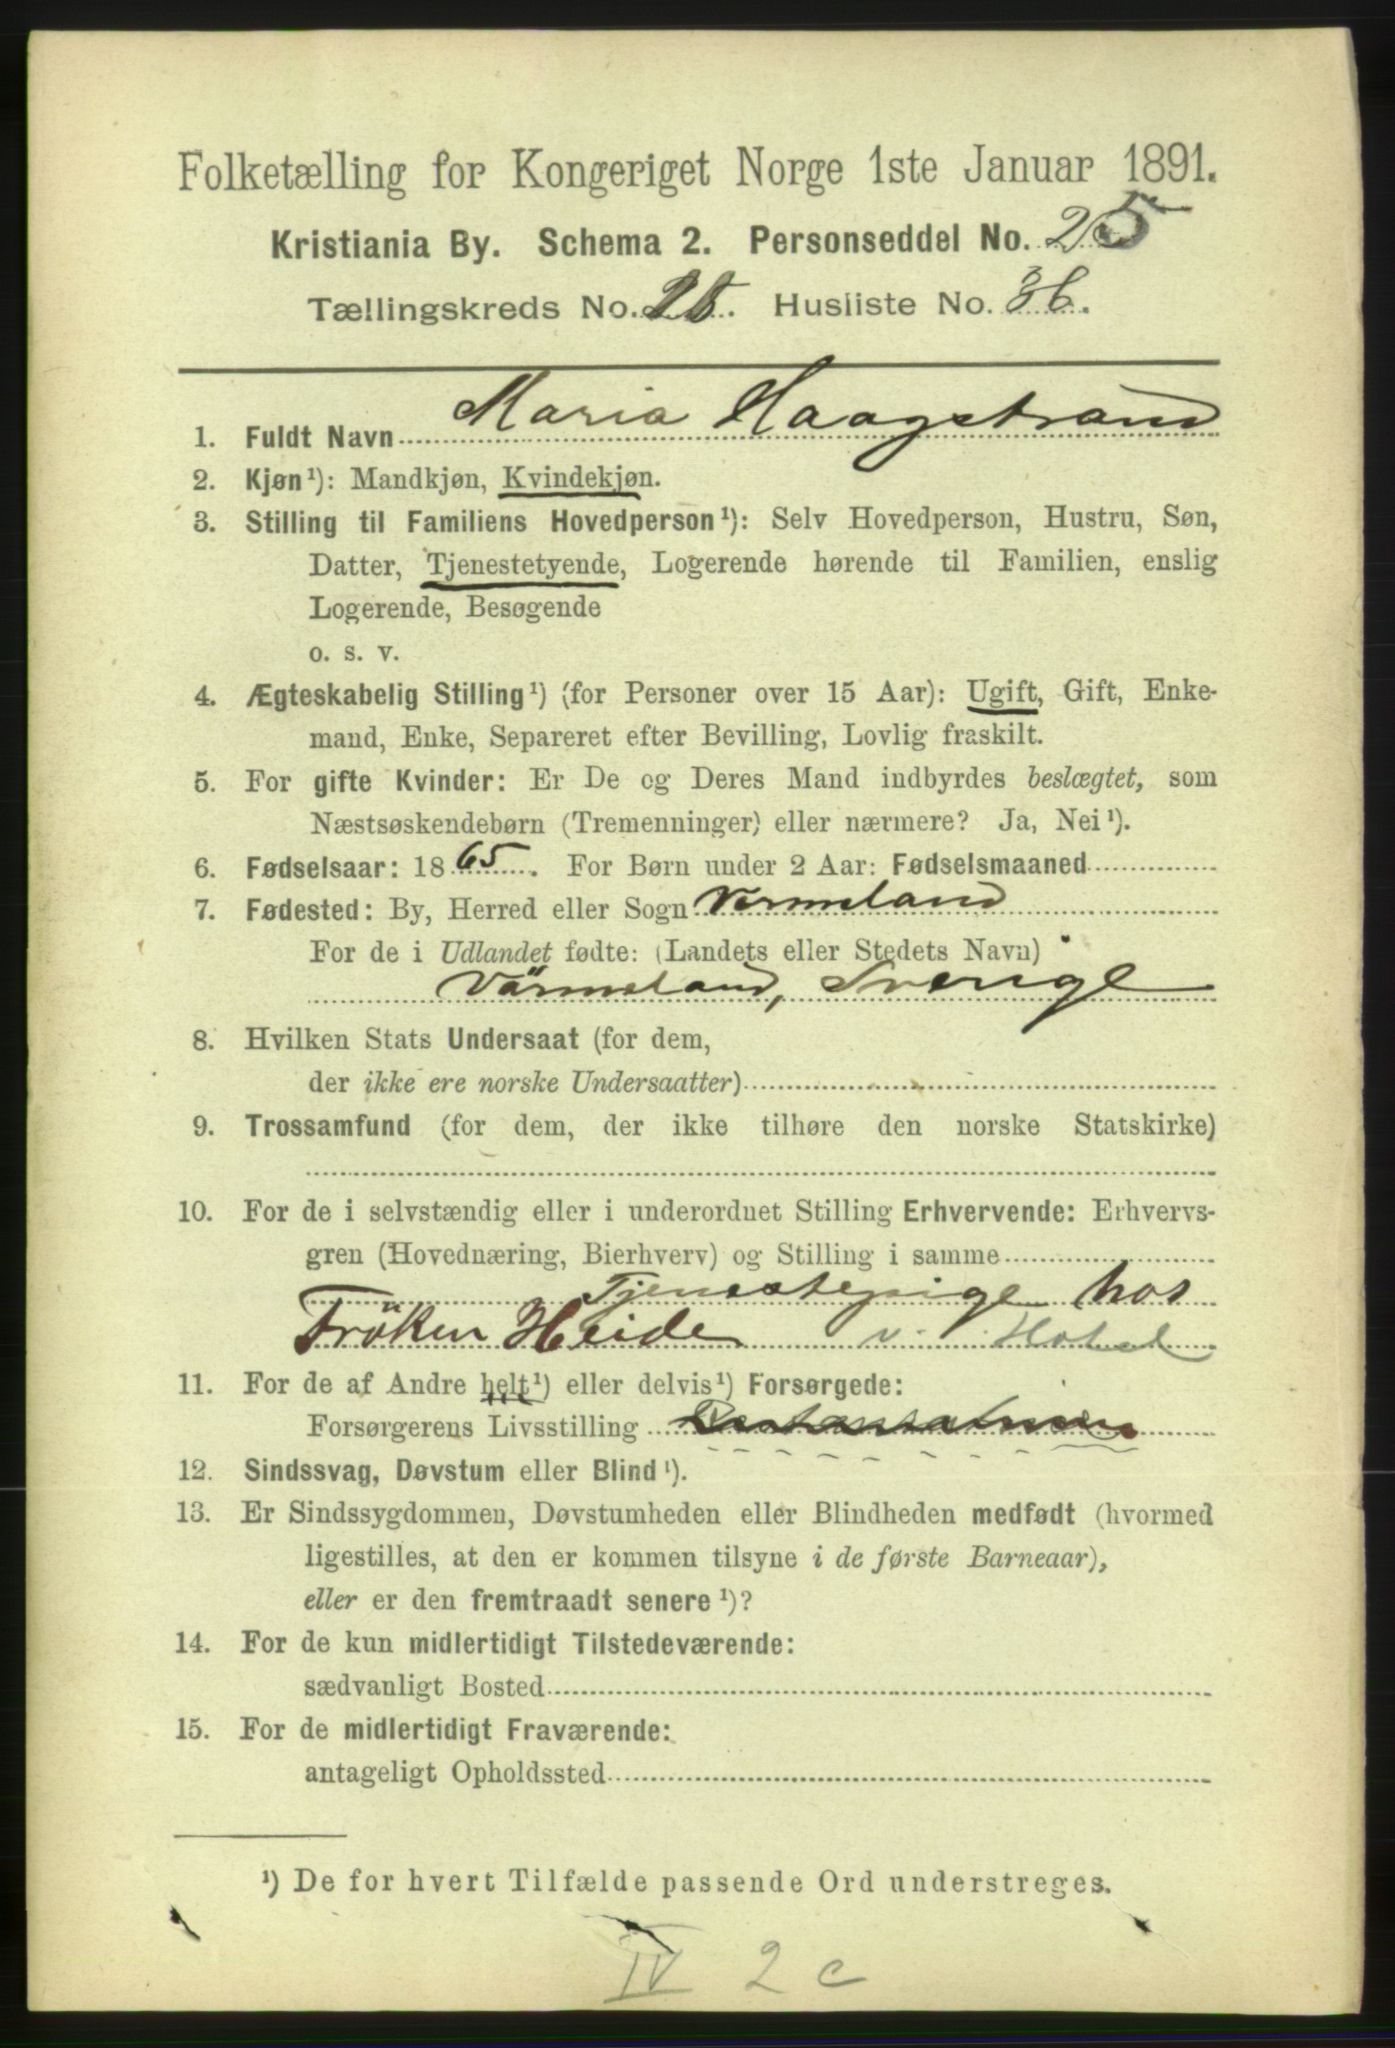 Folketælling for Kongeriget Norge 1ste Januar 1891.
Kristiania By. Schema 2. Personseddel No. 25
Tællingskreds No. 25. Husliste No. 36.
1. Fuldt Navn Maria Haagstrand
2. Kjøn¹): Mandkjøn, Kvindekjøn.
3. Stilling til Familiens Hovedperson¹): Selv Hovedperson, Hustru, Søn,
Datter, Tjenestetyende, Logerende hørende til Familien, enslig
Logerende, Besøgende
o. s. v.
4. Ægteskabelig Stilling¹) (for Personer over 15 Aar): Ugift, Gift, Enke-
mand, Enke, Separeret efter Bevilling, Lovlig fraskilt.
5. For gifte Kvinder: Er De og Deres Mand indbyrdes beslægtet, som
Næstsøskendebørn (Tremenninger) eller nærmere? Ja, Nei¹).
6. Fødselsaar: 1865. For Børn under 2 Aar: Fødselsmaaned
7. Fødested: By, Herred eller Sogn Vermeland
For de i Udlandet fødte: (Landets eller Stedets Navn)
Värmeland, Sverige
8. Hvilken Stats Undersaat (for dem,
der ikke ere norske Undersaatter)
9. Trossamfund (for dem, der ikke tilhøre den norske Statskirke)
10. For de i selvstændig eller i underordnet Stilling Erhvervende: Erhvervs-
gren (Hovednæring, Bierhverv) og Stilling i samme
Tjenestepige hos
Fröken Heide v. Hotel
11. For de af Andre helt¹) eller delvis¹) Forsørgede:
Forsørgerens Livsstilling
12. Sindssvag, Døvstum eller Blind¹).
13. Er Sindssygdommen, Døvstumheden eller Blindheden medfødt (hvormed
ligestilles, at den er kommen tilsyne i de første Barneaar),
eller er den fremtraadt senere¹)?
14. For de kun midlertidigt Tilstedeværende:
sædvanligt Bosted
15. For de midlertidigt Fraværende:
antageligt Opholdssted
¹) De for hvert Tilfælde passende Ord understreges.
IV 2 c